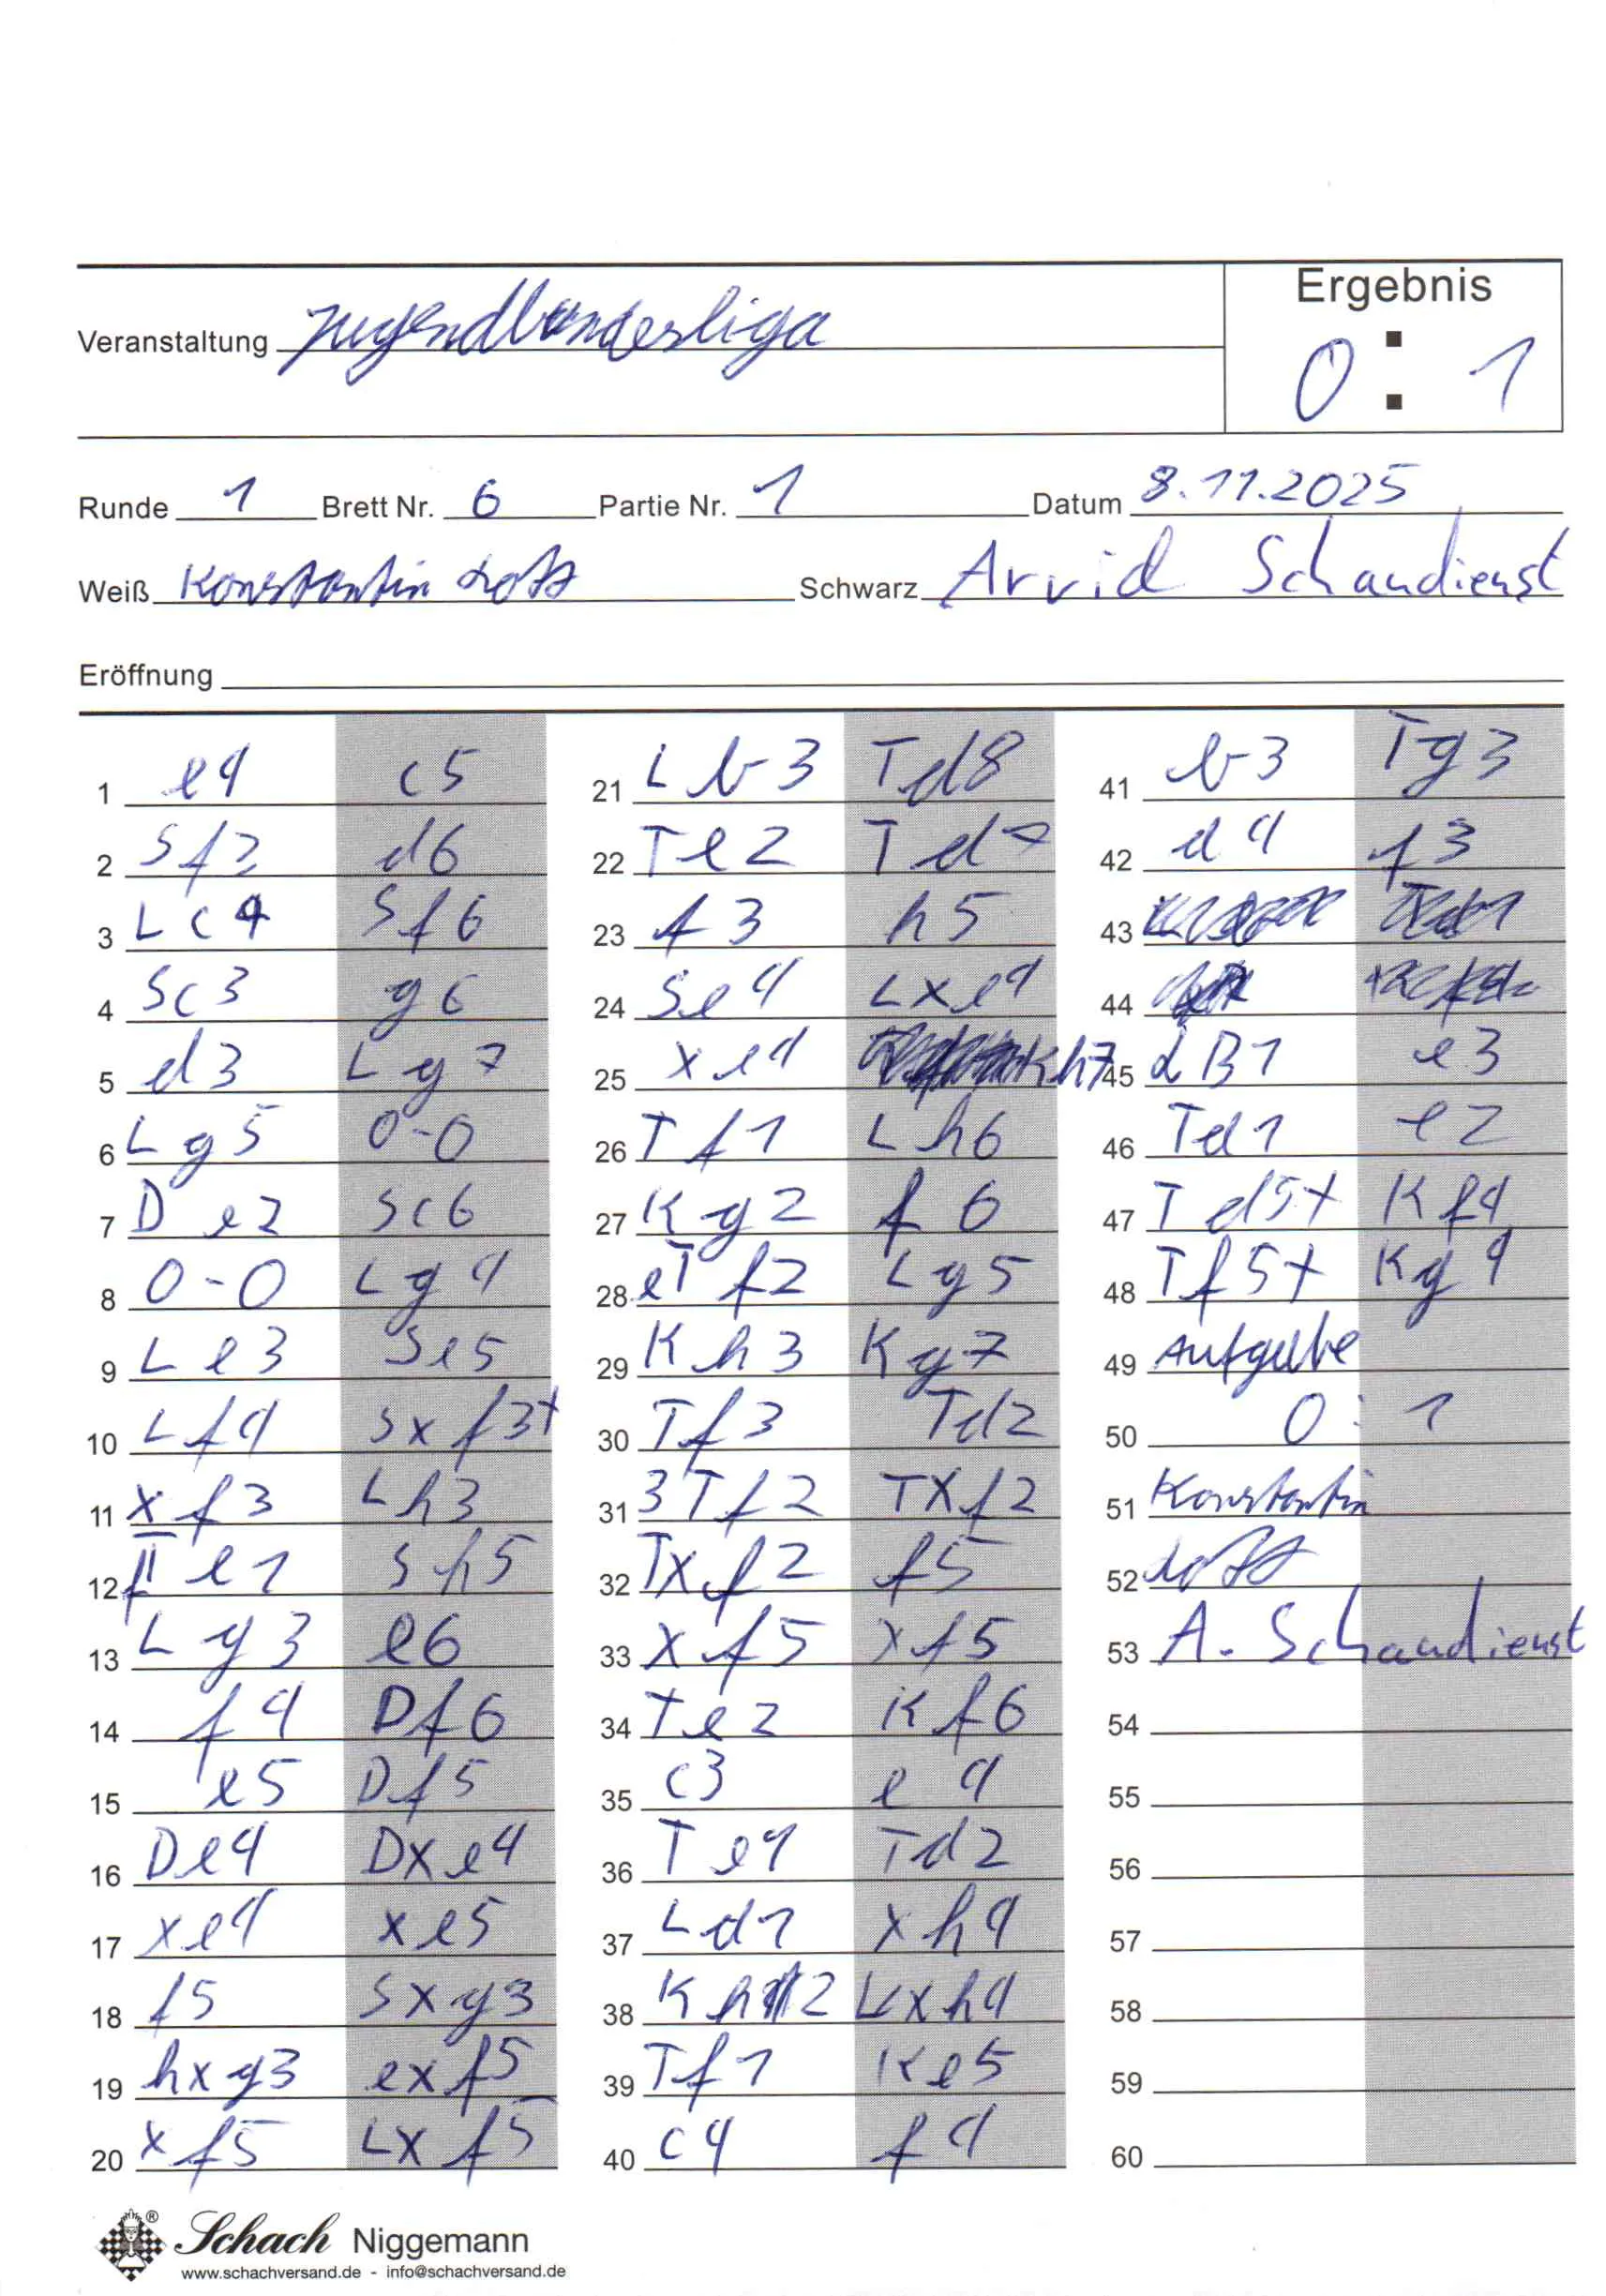 Ergebnis
Veranstaltung Jugendbundesliga
0 : 1
Runde 1 Brett Nr. 6 Partie Nr. 1 Datum 8.11.2025
Weiß Konstantin Schwarz Arvid Schaudienst
Eröffnung
1 e4 c5
2 Sf3 d6
3 Lc4 Sf6
4 Sc3 g6
5 d3 Lg7
6 Lg5 0-0
7 De2 Sc6
8 0-0 Lg4
9 Le3 Se5
10 Lf4 Sxf3+
11 xf3 Lh3
12 fTe1 Sh5
13 Lg3 e6
14 f4 Df6
15 e5 Df5
16 De4 Dxe4
17 xe4 xe5
18 f5 Sxg3
19 hxg3 exf5
20 xf5 Lxf5
21 Lb3 Td8
22 Te2 Td7
23 f3 h5
24 Se4 Lxe4
25 xe4 Kh7
26 Tf1 Lh6
27 Kg2 f6
28 eTf2 Lg5
29 Kh3 Kg7
30 Tf3 Td2
31 3Tf2 TXf2
32 Txf2 f5
33 xf5 xf5
34 Te2 Kf6
35 c3 e4
36 Te1 Td2
37 Ld1 xh4
38 Kh2 Lxh4
39 Tf1 Ke5
40 c4 f4
41 b3 Tg3
42 d4 f3
43
44
45 LB1 e3
46 Td1 e2
47 Td5+ Kf4
48 Tf5+ Kg4
49 Aufgabe
50 0 : 1
51 Konstantin
52
53 A. Schaudienst
54
55
56
57
58
59
60
Schach Niggemann
www.schachversand.de - info@schachversand.de